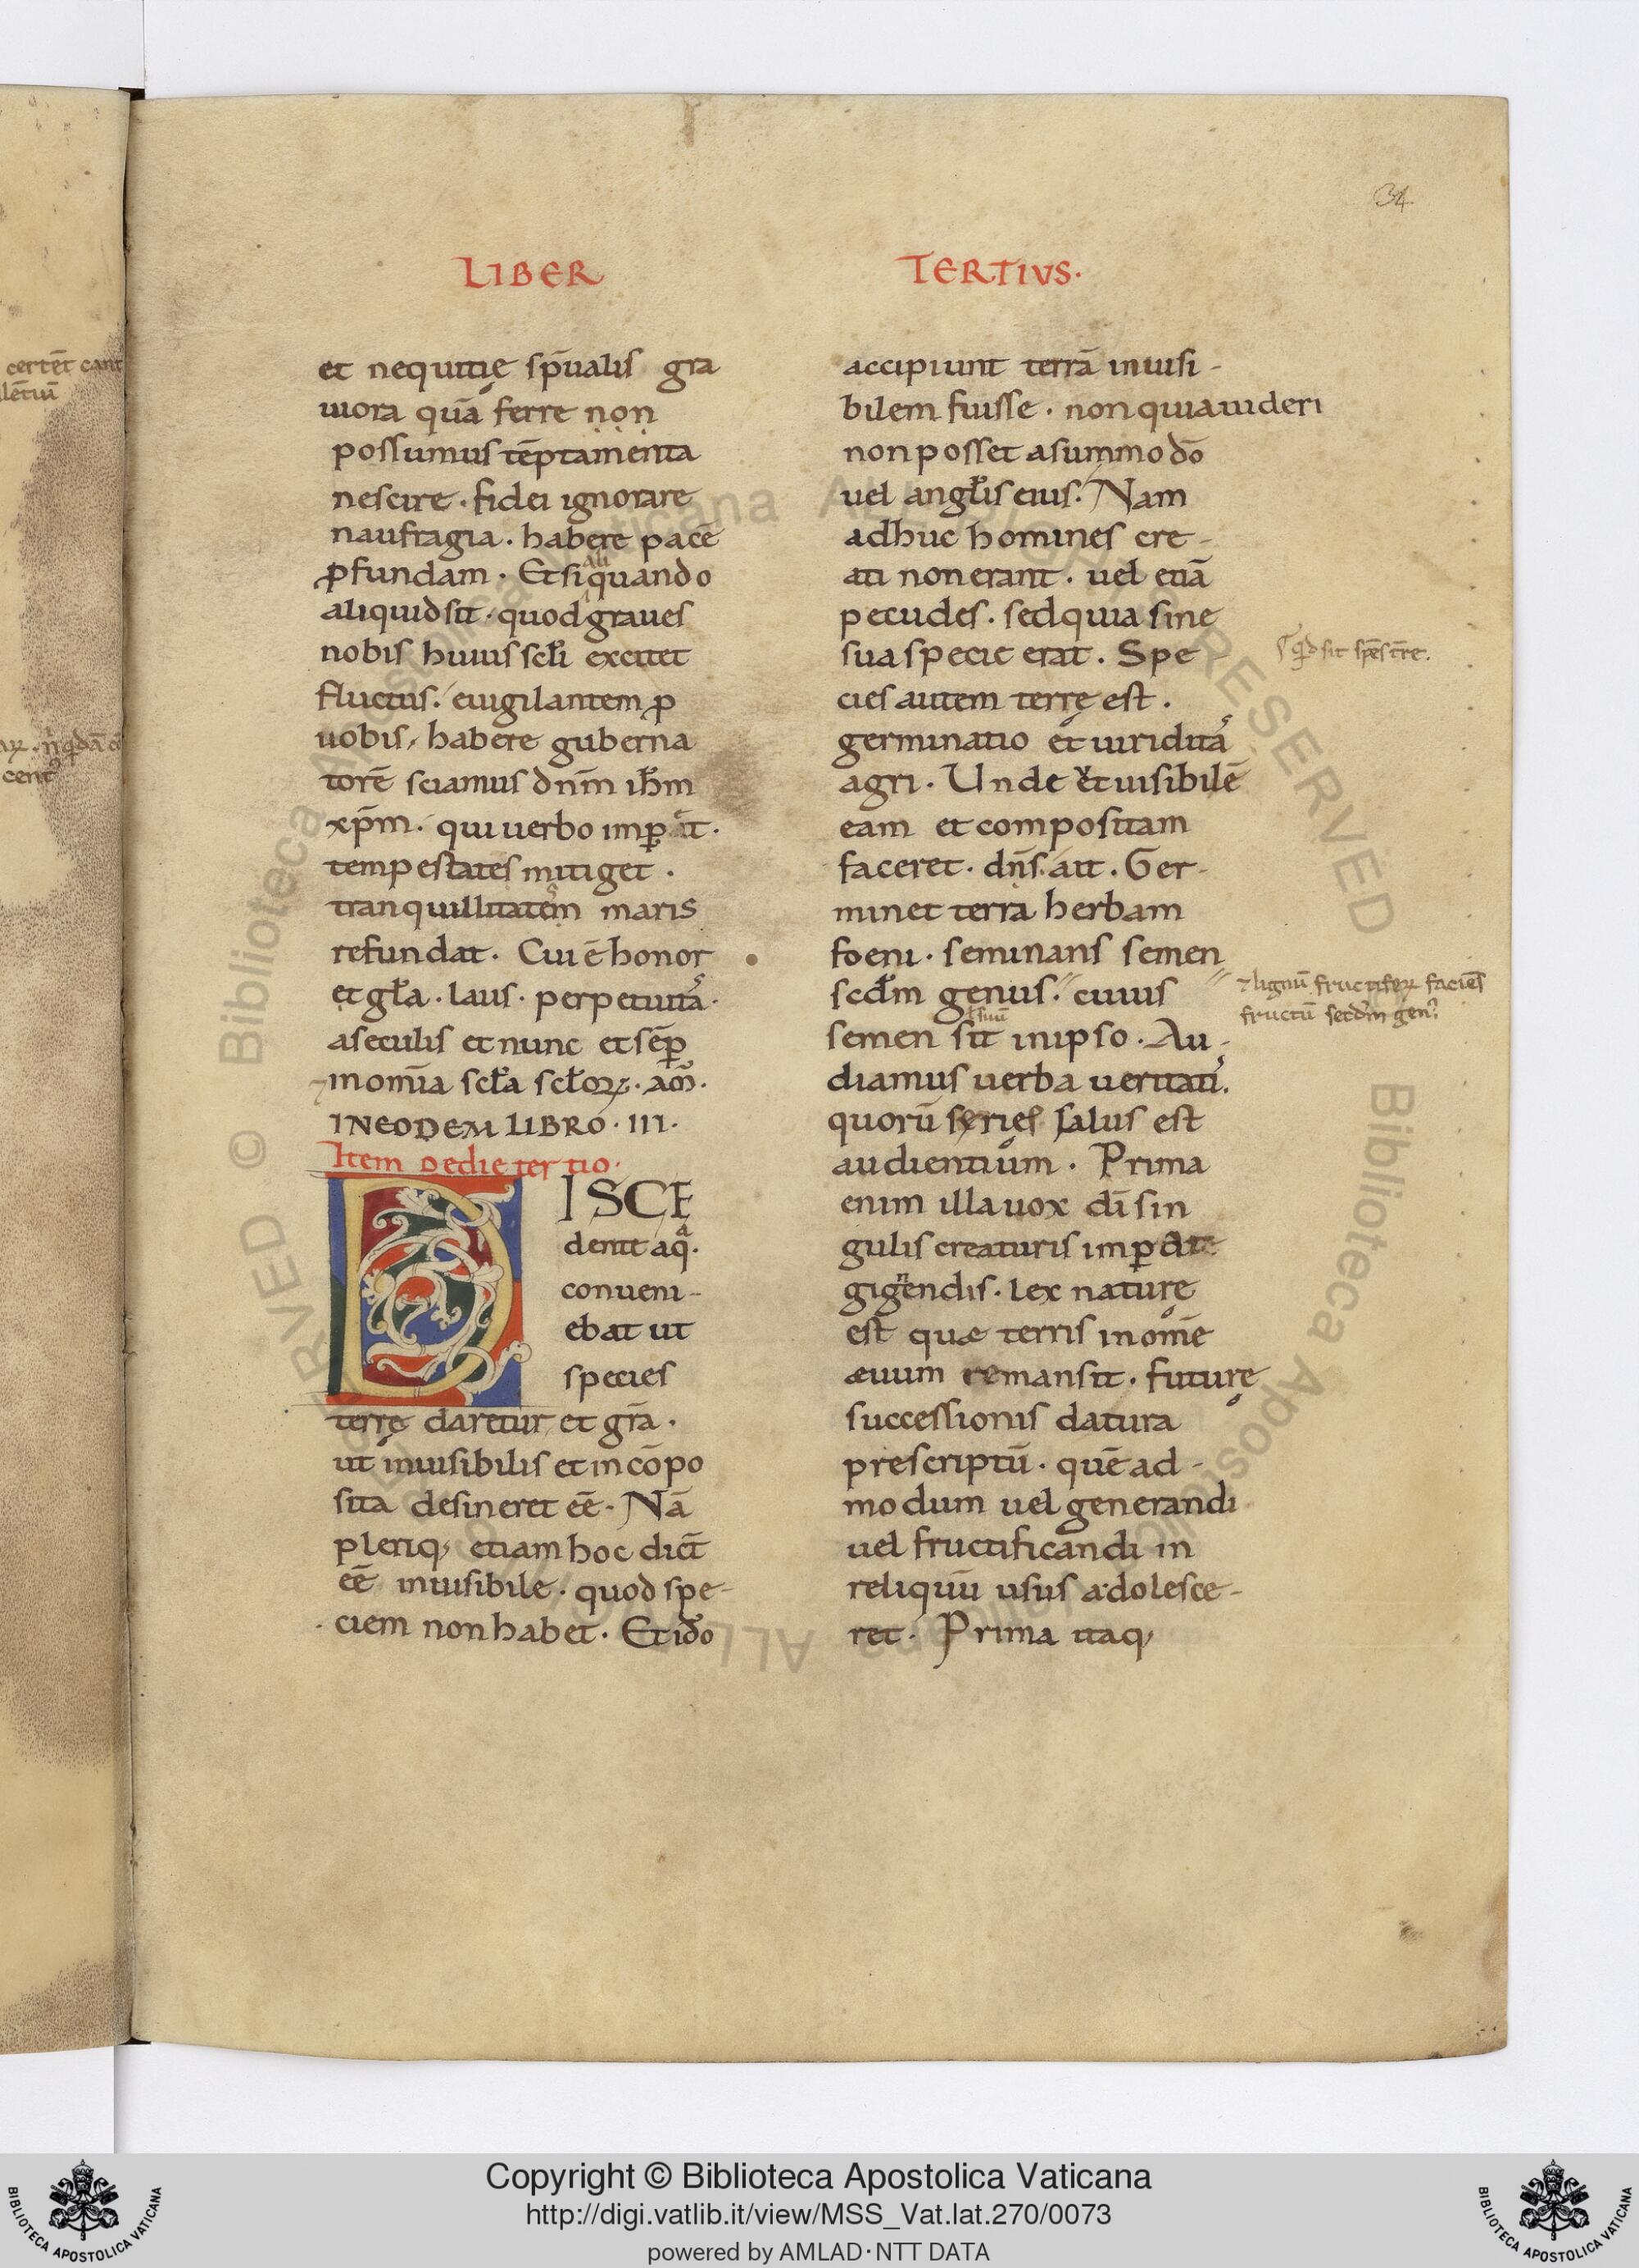 34
LIBER TERTIVS.
et nequitię sp̄ualis gra
uiora quā ferre non
possumus tēptamenta
nescire. fidei ignorare
naufragia. habere pacē
ꝓfundam. Et si aliquando
aliquid sit. quod graues
nobis huius scłi excitet
fluctus. euigilantem ꝓ
uobis, habere guberna
torē sciamus dnm̄ ihm̄
xp̄m. qui uerbo imꝑat.
tempestates mitiget.
tranquillitatem maris
refundat. Cui ē honor
et gła. laus. perpetuitas.
a seculis et nunc et sēꝑ
⁊ in om̄ia scła scłoꝝ. am̄.
IN EODEM LIBRO. III.
Item de die tertio.
DISCE
derit aqa.
conueni-
ebat ut
species
terrę daretur et grā.
ut inuisibilis et incōpo
sita desineret eē. Nā
pleriq; etiam hoc dict̄
eē inuisibile. quod spe-
ciem non habet. Et ido
accipiunt terrā inuisi-
bilem fuisse. non quia uideri
non posset a summo dō
uel angłis eius. Nam
adhuc homines cre-
ati non erant. uel etiā
pecudes. sed quia sine
sua specie erat. Spe
cies autem terrę est.
germinatio et uiriditas
agri. Unde et uisibilē
eam et compositam
faceret. dn̄s. ait. Ger-
minet terra herbam
foeni. seminans semen
scdm̄ genus. cuius
semen sit in ipso. Au-
diamus uerba ueritatis.
quorū series salus est
audientium. Prima
enim illa uox dī sin
gulis creaturis imꝑat
gignendis. lex naturę
est quæ terris in om̄e
æuum remansit. futurę
successionis datura
prescriptū. quē ad-
modum uel generandi
uel fructificandi in
reliquū usus adolesce-
ret. Prima itaq;
qd sit spēs tre.
⁊ lignū fructifeꝝ faciēs
fructū secdm gen'.
certēt cant
Copyright © Biblioteca Apostolica Vaticana
http://digi.vatlib.it/view/MSS_Vat.lat.270/0073
powered by AMLAD·NTT DATA
BIBLIOTECA APOSTOLICA VATICANA
BIBLIOTECA APOSTOLICA VATICANA